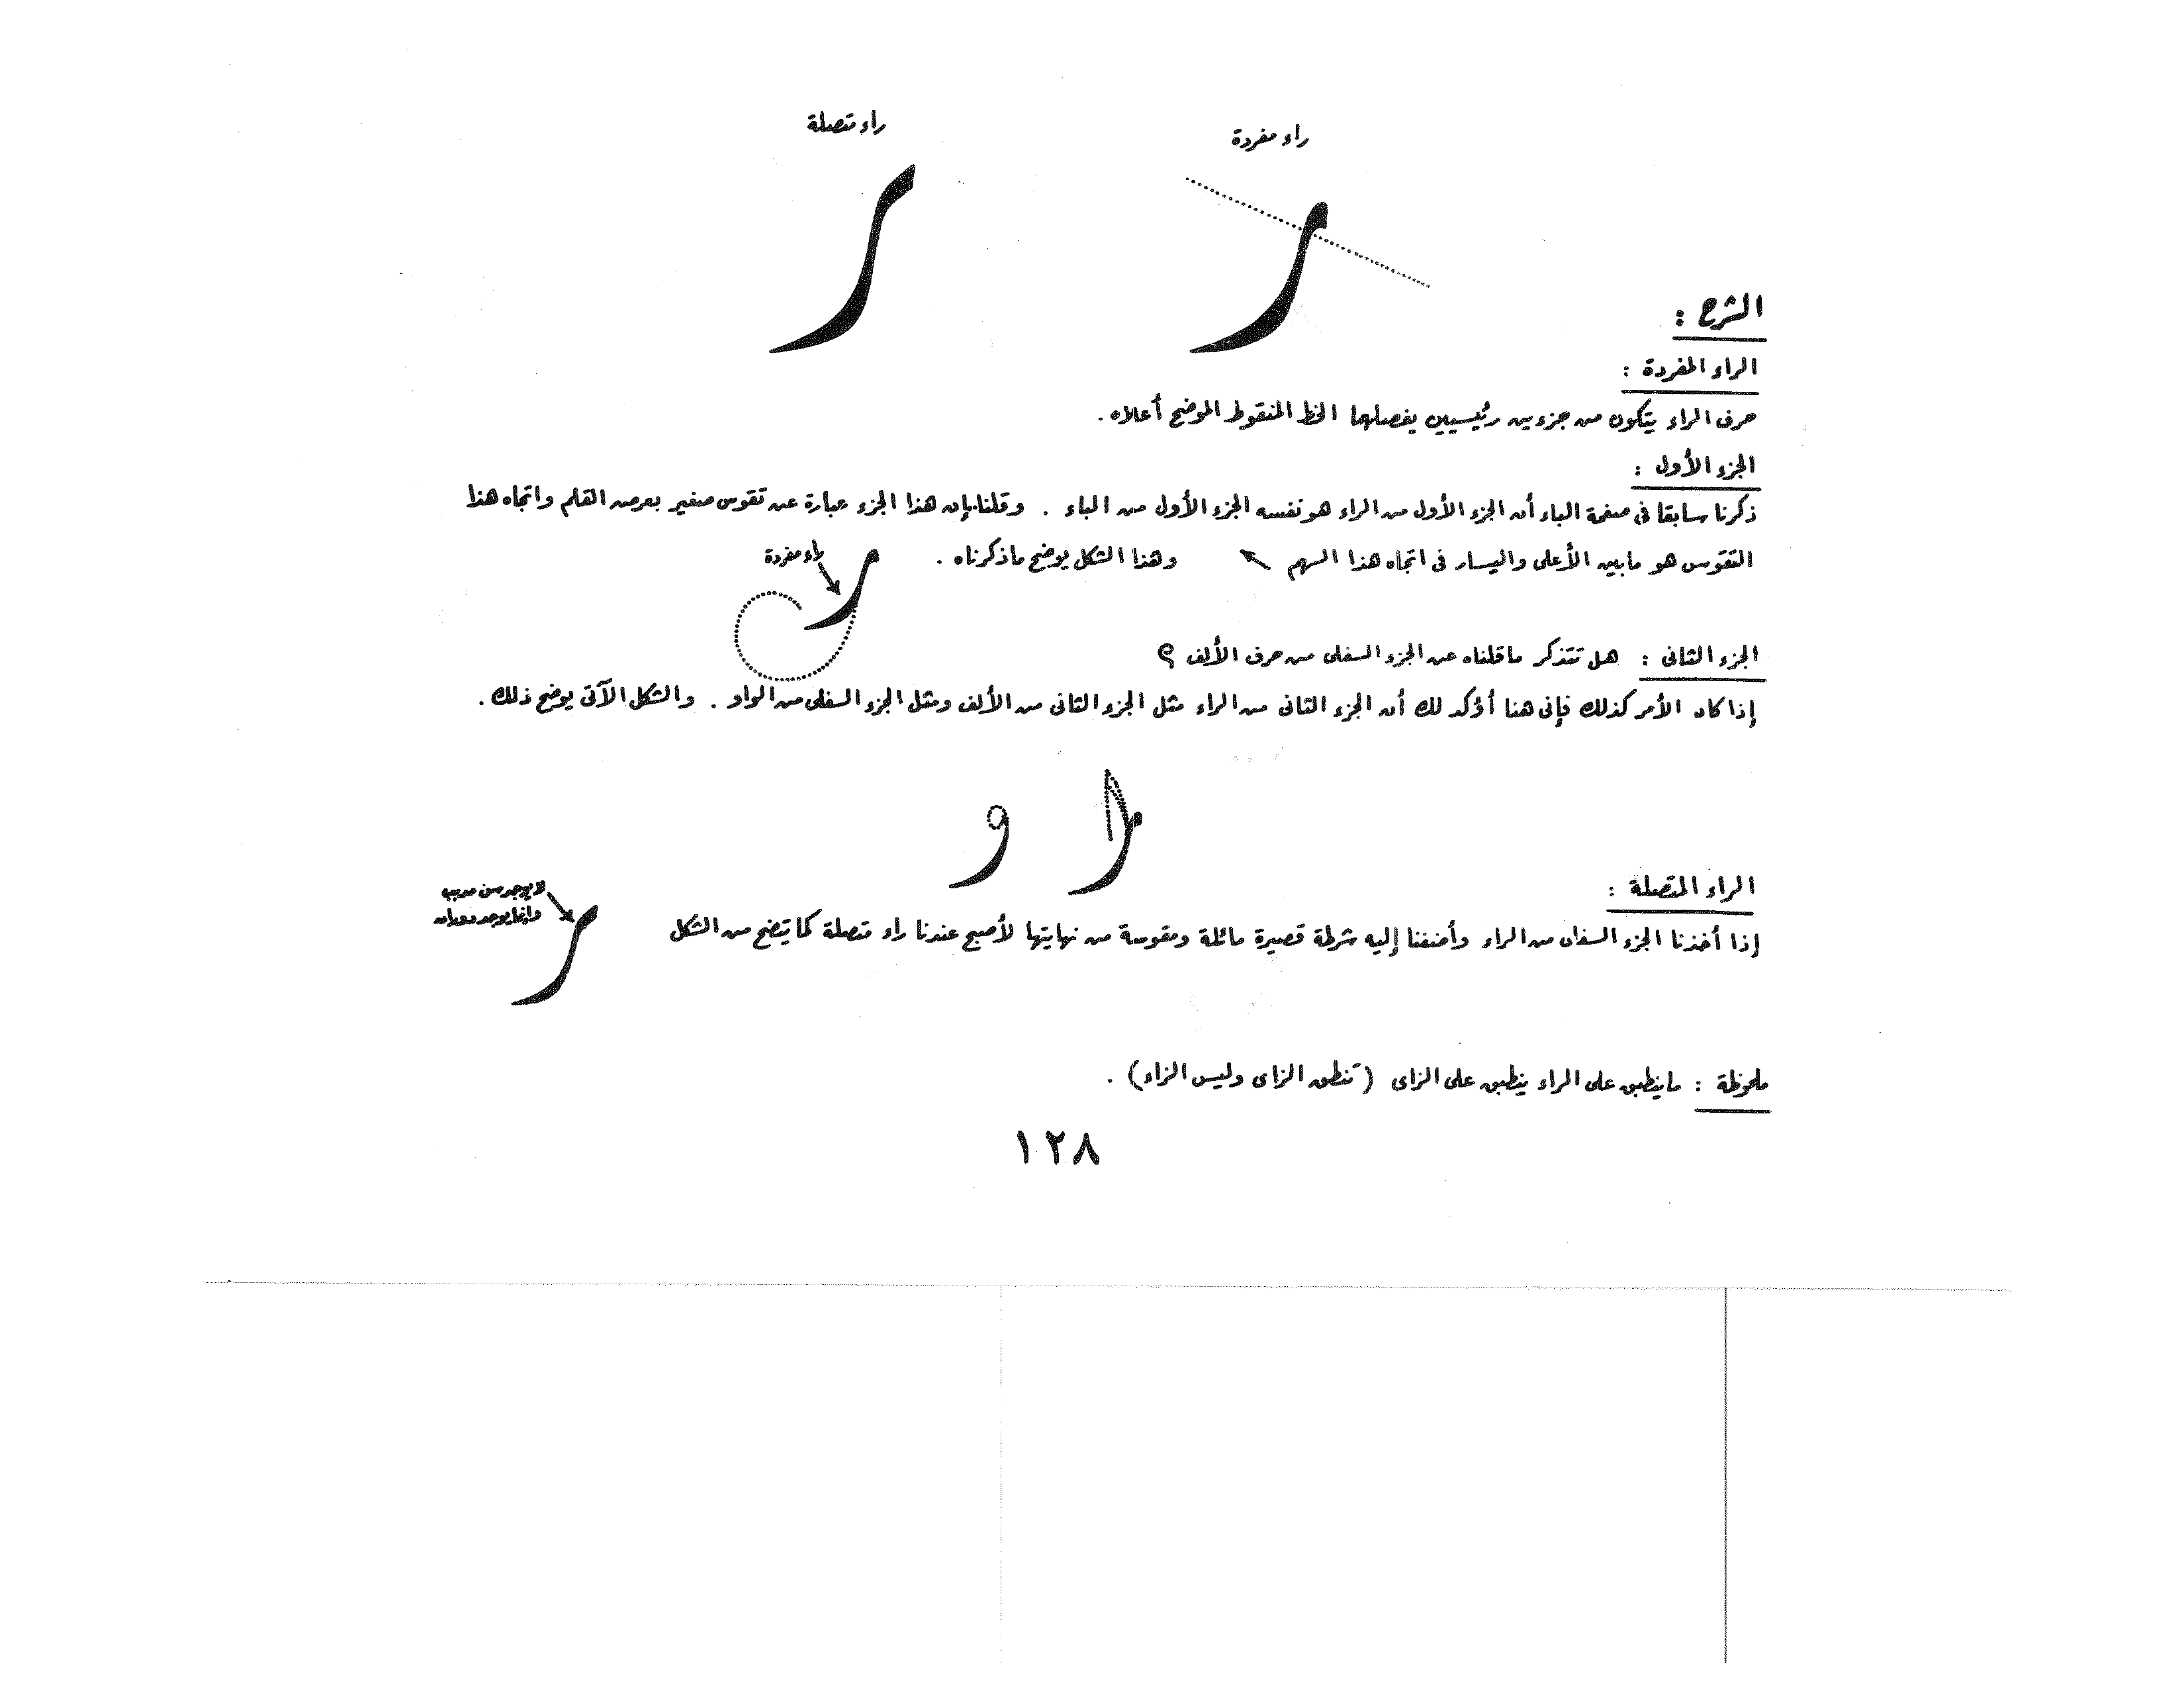 راء مفردة
راء متصلة
الشرح :
الراء المفردة :
حرف الراء يتكون من جزءين رئيسيين يفصلهما الخط المنقوط الموضح أعلاه .
الجزء الأول :
ذكرنا سابقا فى صفحة الباء أن الجزء الأول من الراء هو نفسه الجزء الأول من الباء . وقلنا بإن هذا الجزء عبارة عن تقوس صغير بعرض القلم واتجاه هذا
التقوس هو مابين الأعلى واليسار فى اتجاه هذا السهم وهذا الشكل يوضح ماذكرناه .
راء مفردة
الجزء الثانى : هل تتذكر ماقلناه عن الجزء السفلى من حرف الألف ؟
إذا كان الأمر كذلك فإنى هنا أؤكد لك أن الجزء الثانى من الراء مثل الجزء الثانى من الألف ومثل الجزء السفلى من الواو . والشكل الآتى يوضح ذلك .
الراء المتصلة :
لا يوجد سن مدبب
وإنما يوجد دوران
إذا أخذنا الجزء السفلى من الراء وأضفنا إليه شرطة قصيرة مائلة ومقوسة من نهايتها لأصبح عندنا راء متصلة كما يتضح من الشكل
ملحوظة : ماينطبق على الراء ينطبق على الزاى (تنطق الزاى وليس الزاء) .
١٢٨